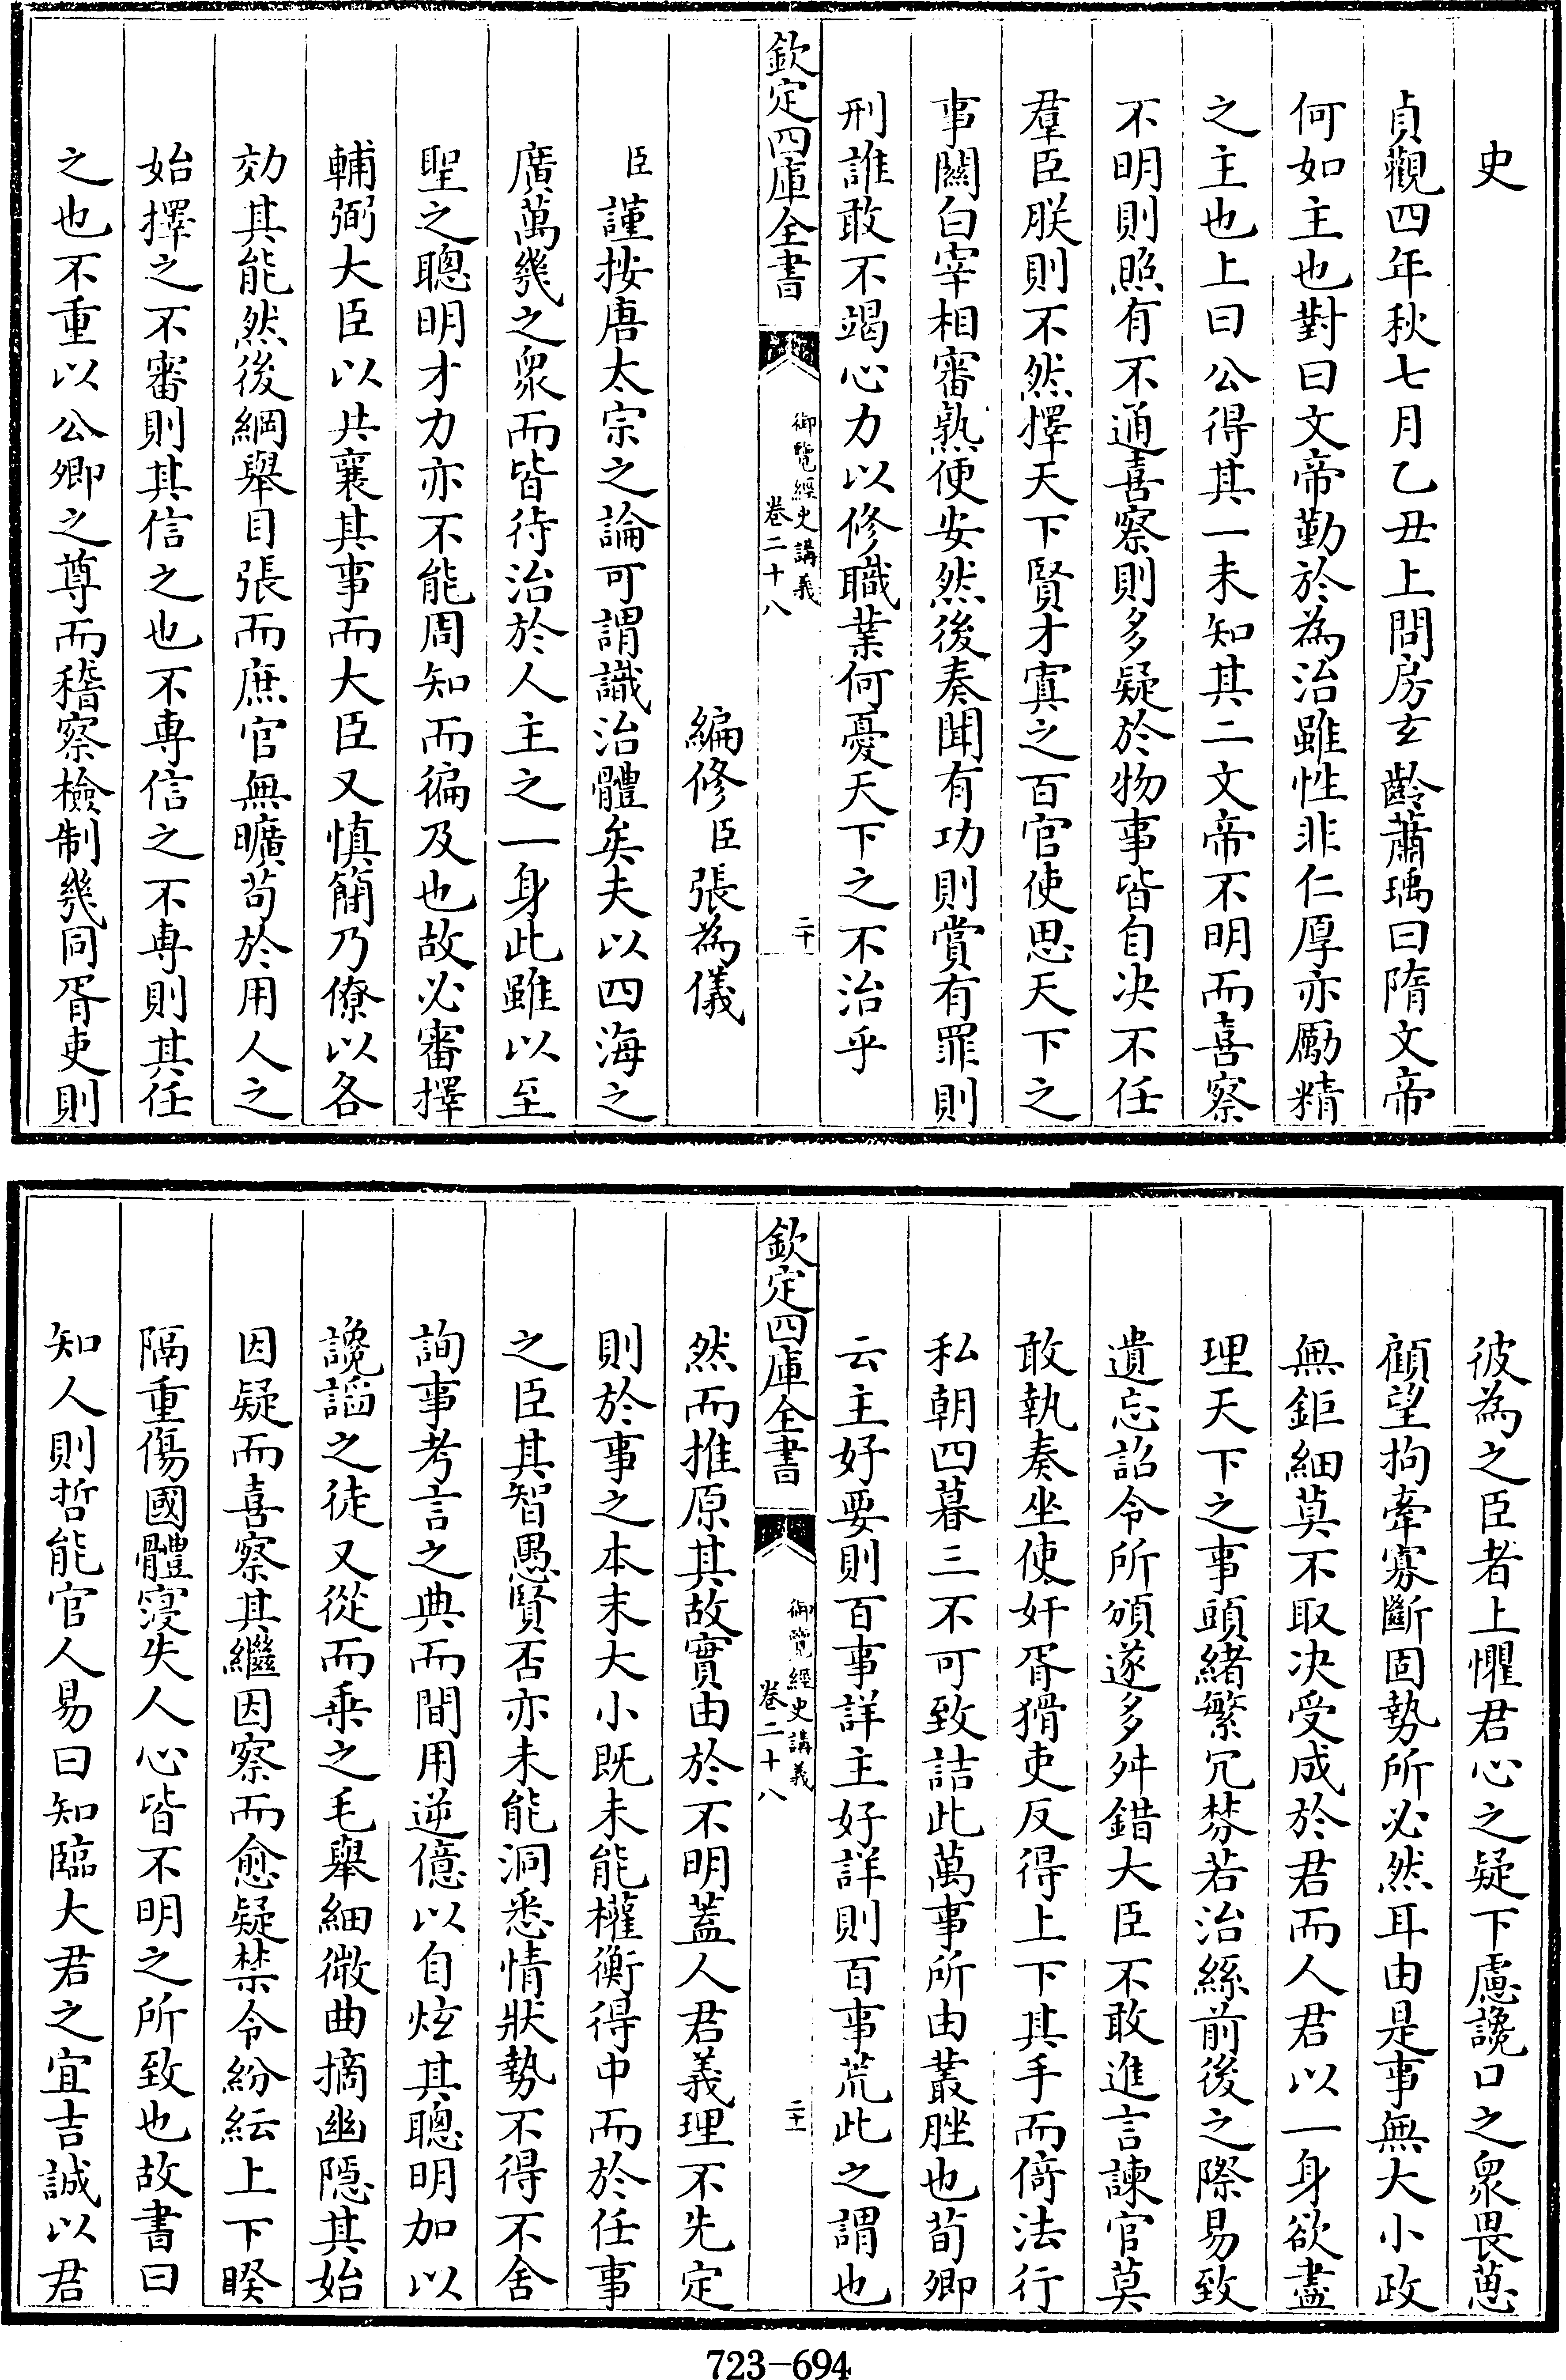 史
貞觀四年秋七月乙丑上問房玄齡蕭瑀曰隋文帝
何如主也對曰文帝勤於為治雖性非仁厚亦勵精
之主也上曰公得其一未知其二文帝不明而喜察
不明則照有不通喜察則多疑於物事皆自决不任
羣臣朕則不然擇天下賢才寘之百官使思天下之
事關白宰相審熟便安然後奏聞有功則賞有罪則
刑誰敢不竭心力以修職業何憂天下之不治乎
欽定四庫全書
御覽經史講義
卷二十八
二十
編修臣張為儀
臣謹按唐太宗之論可謂識治體矣夫以四海之
廣萬幾之衆而皆待治於人主之一身此雖以至
聖之聰明才力亦不能周知而徧及也故必審擇
輔弼大臣以共襄其事而大臣又慎簡乃僚以各
効其能然後綱舉目張而庶官無曠苟於用人之
始擇之不審則其信之也不專信之不專則其任
之也不重以公卿之尊而稽察檢制幾同胥吏則
彼為之臣者上懼君心之疑下慮讒口之衆畏葸
顧望拘牽寡斷固勢所必然耳由是事無大小政
無鉅細莫不取决受成於君而人君以一身欲盡
理天下之事頭緒繁冗棼若治絲前後之際易致
遺忘詔令所頒遂多舛錯大臣不敢進言諫官莫
敢執奏坐使奸胥猾吏反得上下其手而倚法行
私朝四暮三不可致詰此萬事所由叢脞也荀卿
云主好要則百事詳主好詳則百事荒此之謂也
欽定四庫全書
御覽經史講義
卷二十八
二十一
然而推原其故實由於不明蓋人君義理不先定
則於事之本末大小既未能權衡得中而於任事
之臣其智愚賢否亦未能洞悉情狀勢不得不舍
詢事考言之典而間用逆億以自炫其聰明加以
讒謟之徒又從而乘之毛舉細微曲摘幽隱其始
因疑而喜察其繼因察而愈疑禁令紛紜上下暌
隔重傷國體寖失人心皆不明之所致也故書曰
知人則哲能官人易曰知臨大君之宜吉誠以君
723-694